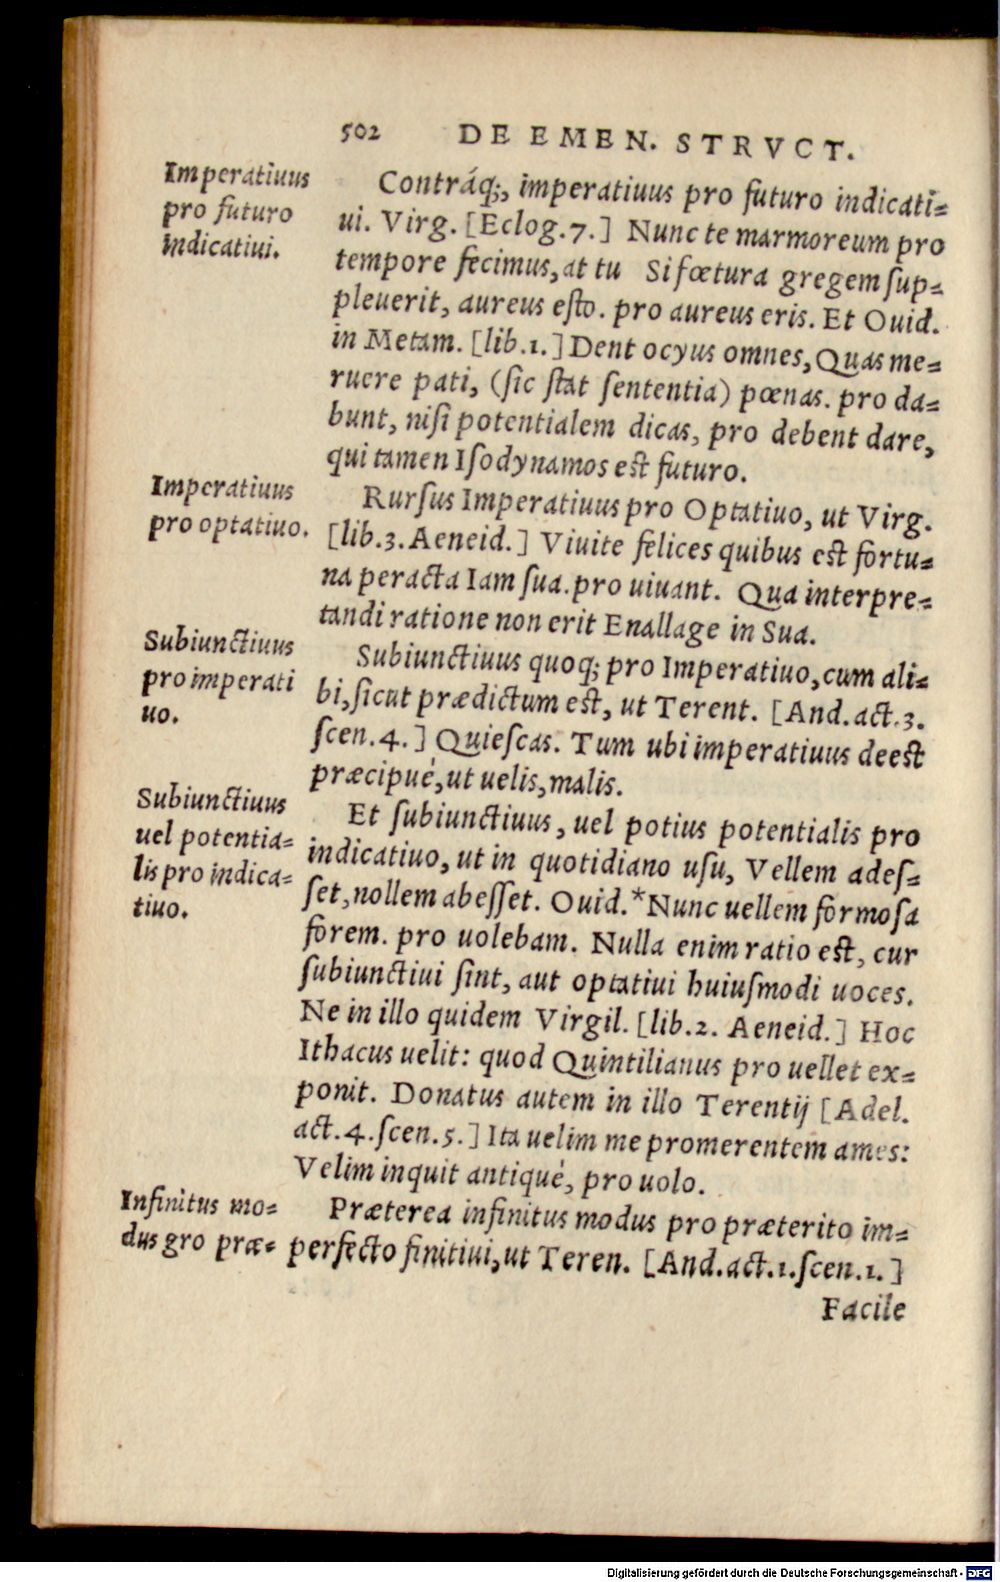 502 DE EMEN. STRVCT.
Imperatiuus
pro futuro
indicatiui.
Contráq;, imperatiuus pro futuro indicati=
ui. Virg. [Eclog.7.] Nunc te marmoreum pro
tempore fecimus, at tu Si fœtura gregem ſup=
pleuerit, aureus eſto. pro aureus eris. Et Ouid.
in Metam. [lib.1.] Dent ocyus omnes, Quas me=
ruere pati, (ſic ſtat ſententia) pœnas. pro da=
bunt, niſi potentialem dicas, pro debent dare,
qui tamen Iſodynamos eſt futuro.
Imperatiuus
pro optatiuo.
Rurſus Imperatiuus pro Optatiuo, ut Virg.
[lib.3. Aeneid.] Viuite felices quibus eſt fortu=
na peracta Iam ſua. pro uiuant. Qua interpre=
tandi ratione non erit Enallage in Sua.
Subiunctiuus
pro imperati
uo.
Subiunctiuus quoq; pro Imperatiuo, cum ali=
bi, ſicut prædictum eſt, ut Terent. [And.act.3.
ſcen.4.] Quieſcas. Tum ubi imperatiuus deeſt
præcipuè, ut uelis, malis.
Subiunctiuus
uel potentia=
lis pro indica=
tiuo.
Et ſubiunctiuus, uel potius potentialis pro
indicatiuo, ut in quotidiano uſu, Vellem adeſ=
ſet, nollem abeſſet. Ouid.*Nunc uellem formoſa
forem. pro uolebam. Nulla enim ratio eſt, cur
ſubiunctiui ſint, aut optatiui huiuſmodi uoces.
Ne in illo quidem Virgil. [lib.2. Aeneid.] Hoc
Ithacus uelit: quod Quintilianus pro uellet ex=
ponit. Donatus autem in illo Terentij [Adel.
act.4.ſcen.5.] Ita uelim me promerentem ames:
Velim inquit antiquè, pro uolo.
Infinitus mo=
dus gro præ=
Præterea infinitus modus pro præterito im=
perfecto finitiui, ut Teren. [And.act.1.ſcen.1.]
Facile
Digitalisierung gefördert durch die Deutsche Forschungsgemeinschaft - DFG